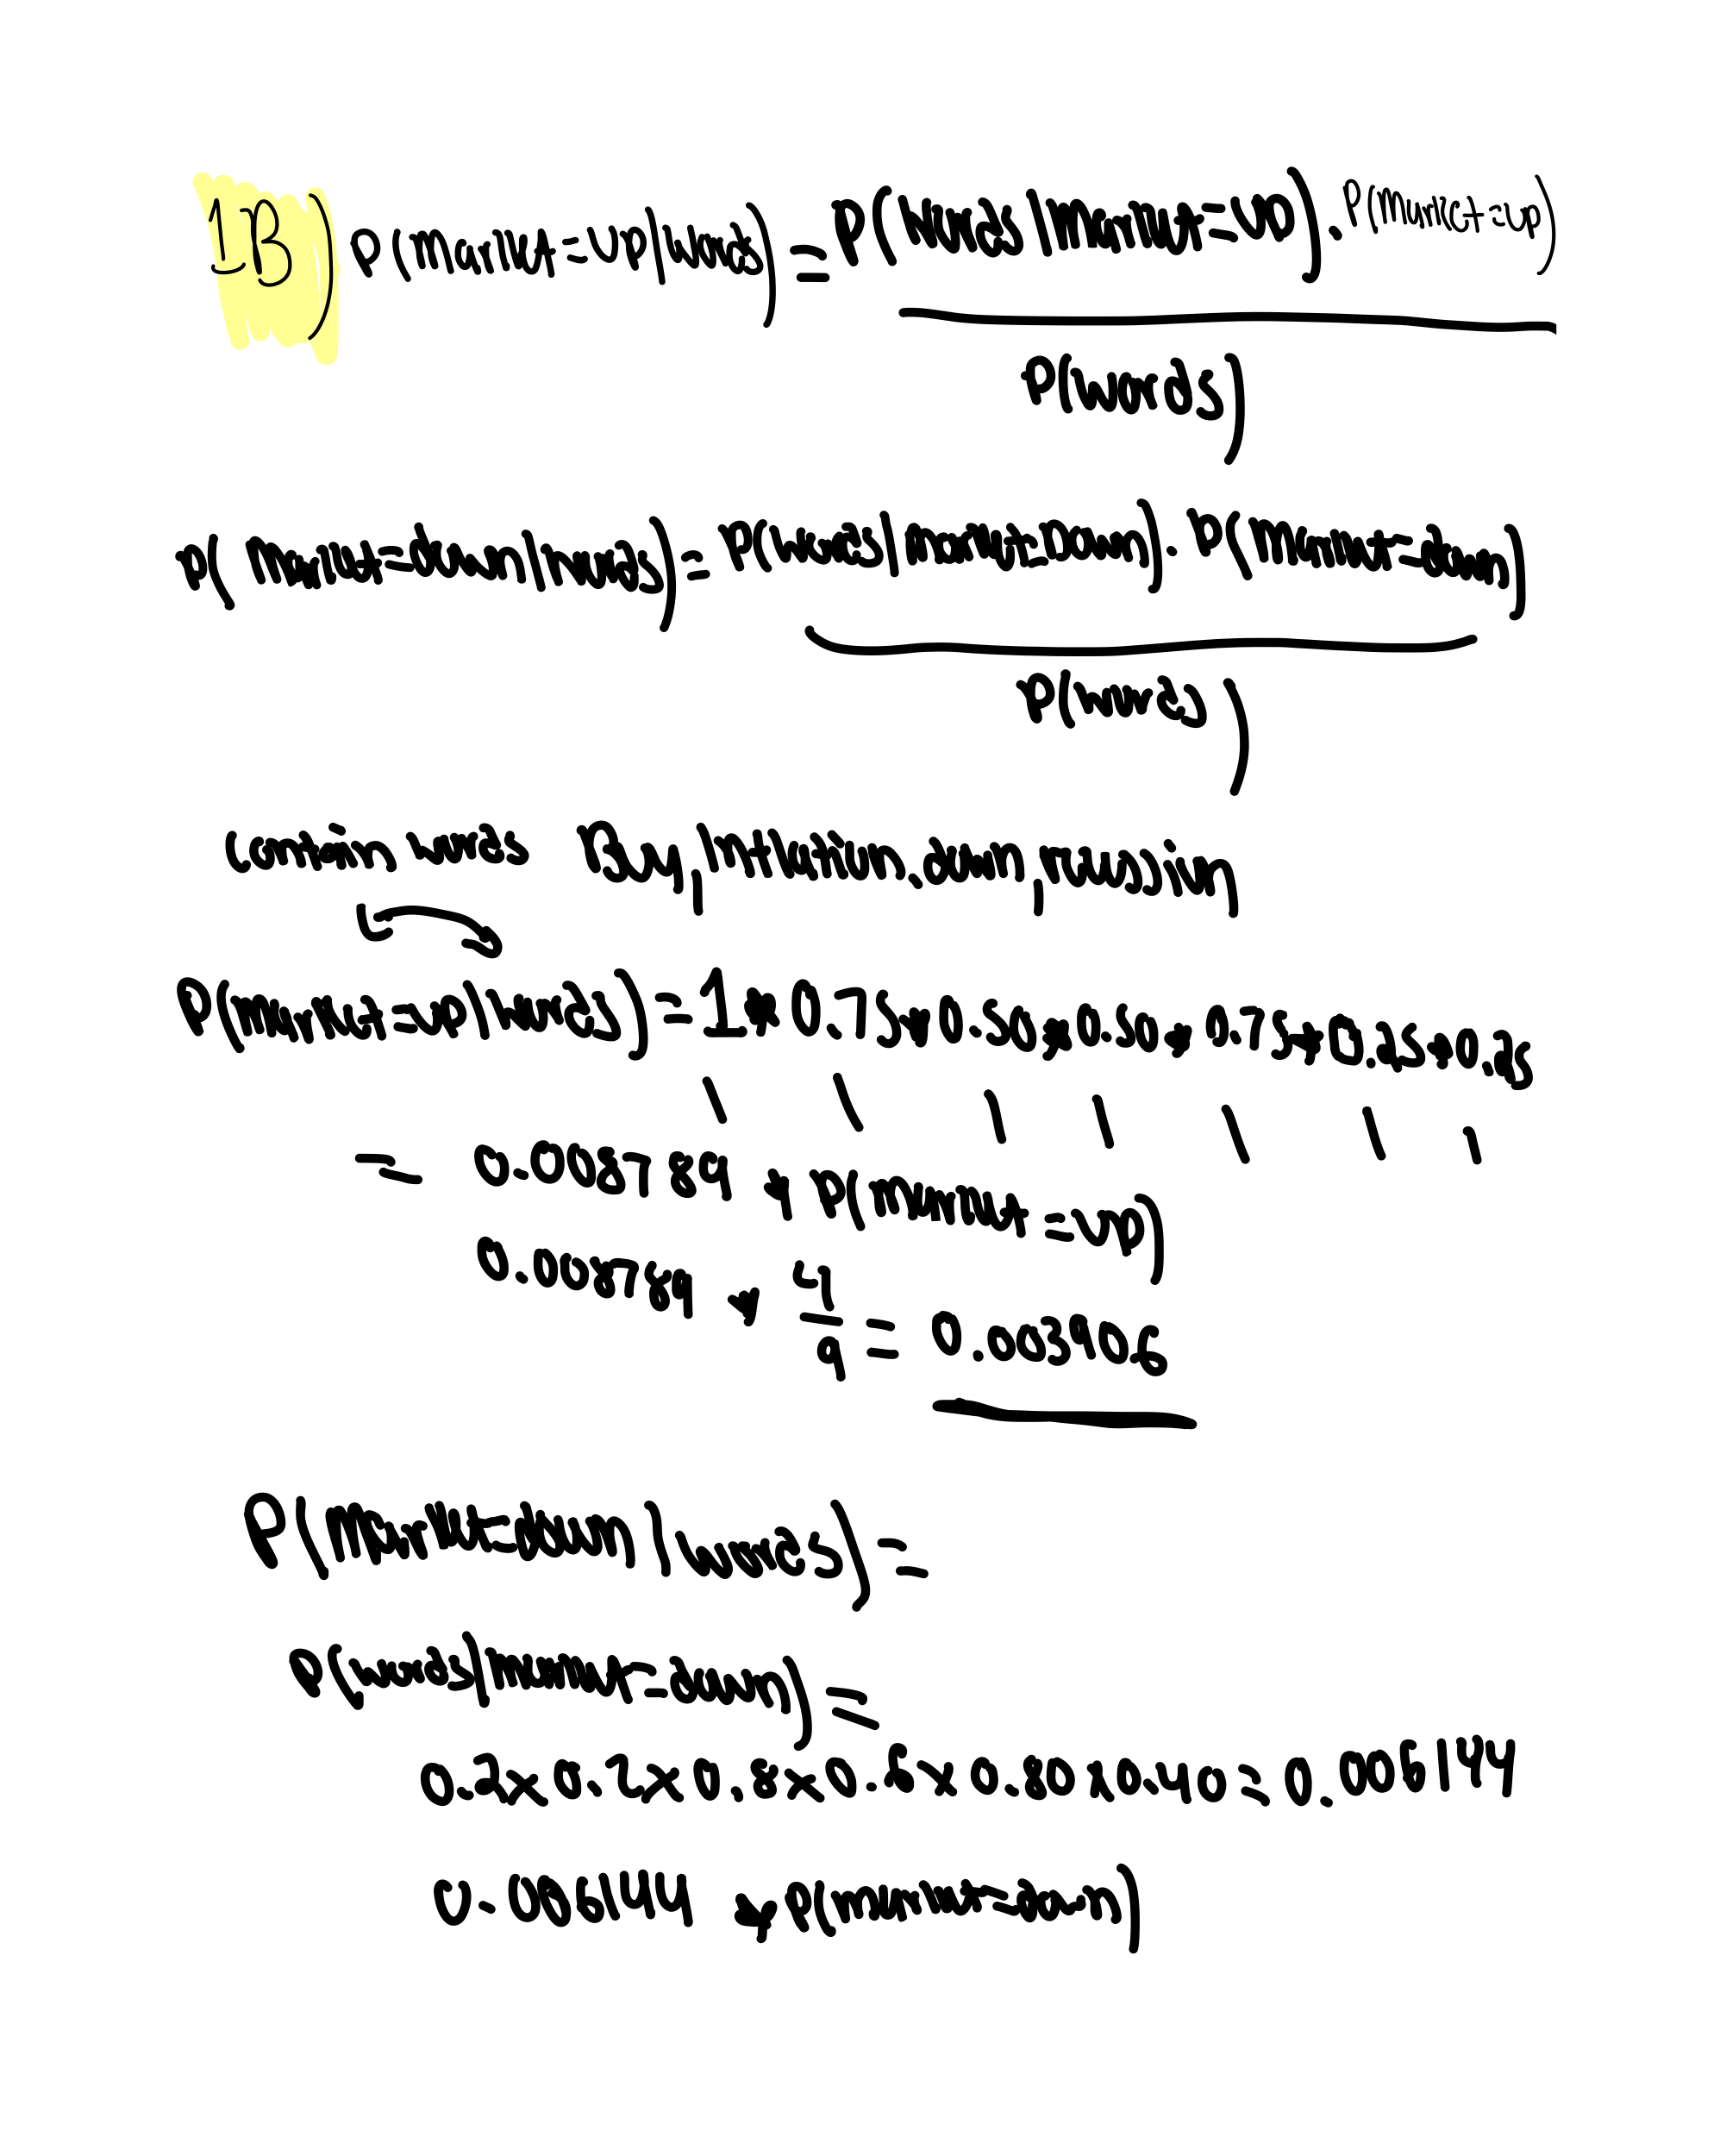 1B) P(Market=UP|words) = P(words|Market=up) . P(Market=up)
P(words)
P(Market=down|words) = P(words|market=Down) . P(Market=down)
P(words)
Contain words Buy, inflation, down, recession
P(Market=up|words) = 1 * 0.75 * 0.50 * 0.50 * 0.75 * 0.25 * 0.25
= 0.008789 * P(market=up)
0.008789 * 4/9 = 0.003906
P(Market=down|words) =
P(words|market=down) =
0.2x0.2x0.8x0.6x0.80x0.40=0.006144
0.006144 * P(market=down)